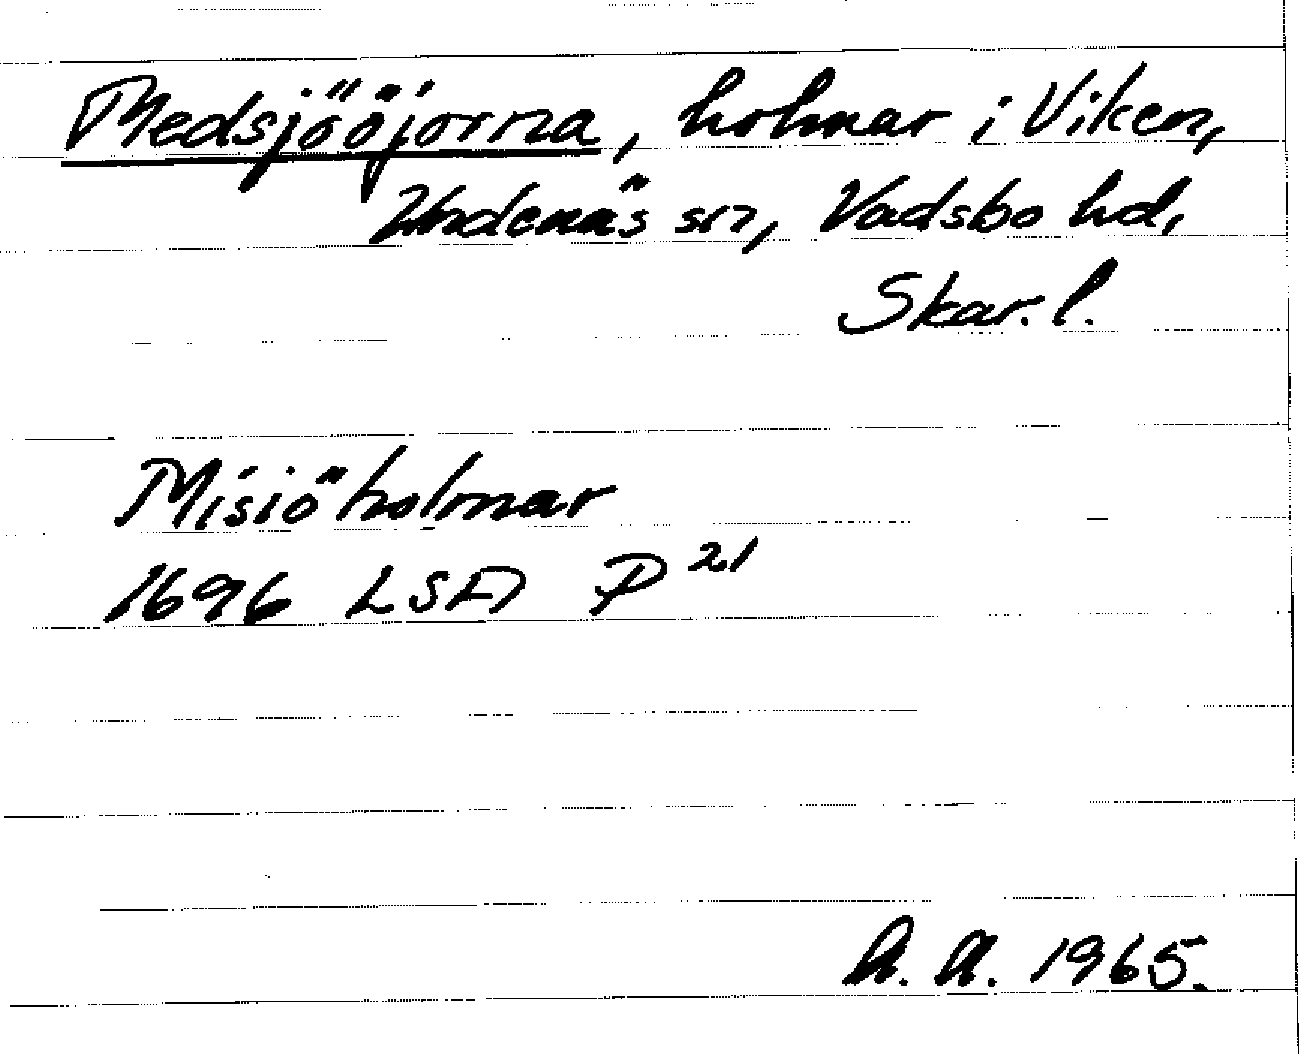 Medsjööjorna, holmar i Viken,
Undenäs sn, Vadsbo hd,
Skar. l.
Misiö holmar
1696 LSA P 21
A. A. 1965.